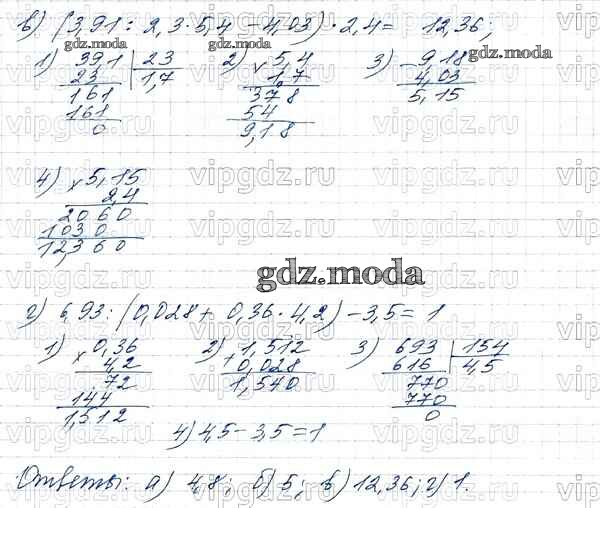 в) (3,91 : 2,3 · 5,4 – 4,03) · 2,4 = 12,36;
1) 391 | 23
23 | 1,7
161
161
0
2) × 5,4
1,7
378
54
9,18
3) – 9,18
4,03
5,15
4) × 5,15
2,4
2060
1030
12,360
gdz.moda
г) 6,93 : (0,028 + 0,36 · 4,2) – 3,5 = 1
1) × 0,36
4,2
72
144
1,512
2) + 1,512
0,028
1,540
3) 693 | 154
616 | 4,5
770
770
0
4) 4,5 – 3,5 = 1
Ответы: а) 4,8; б) 5; в) 12,36; г) 1.